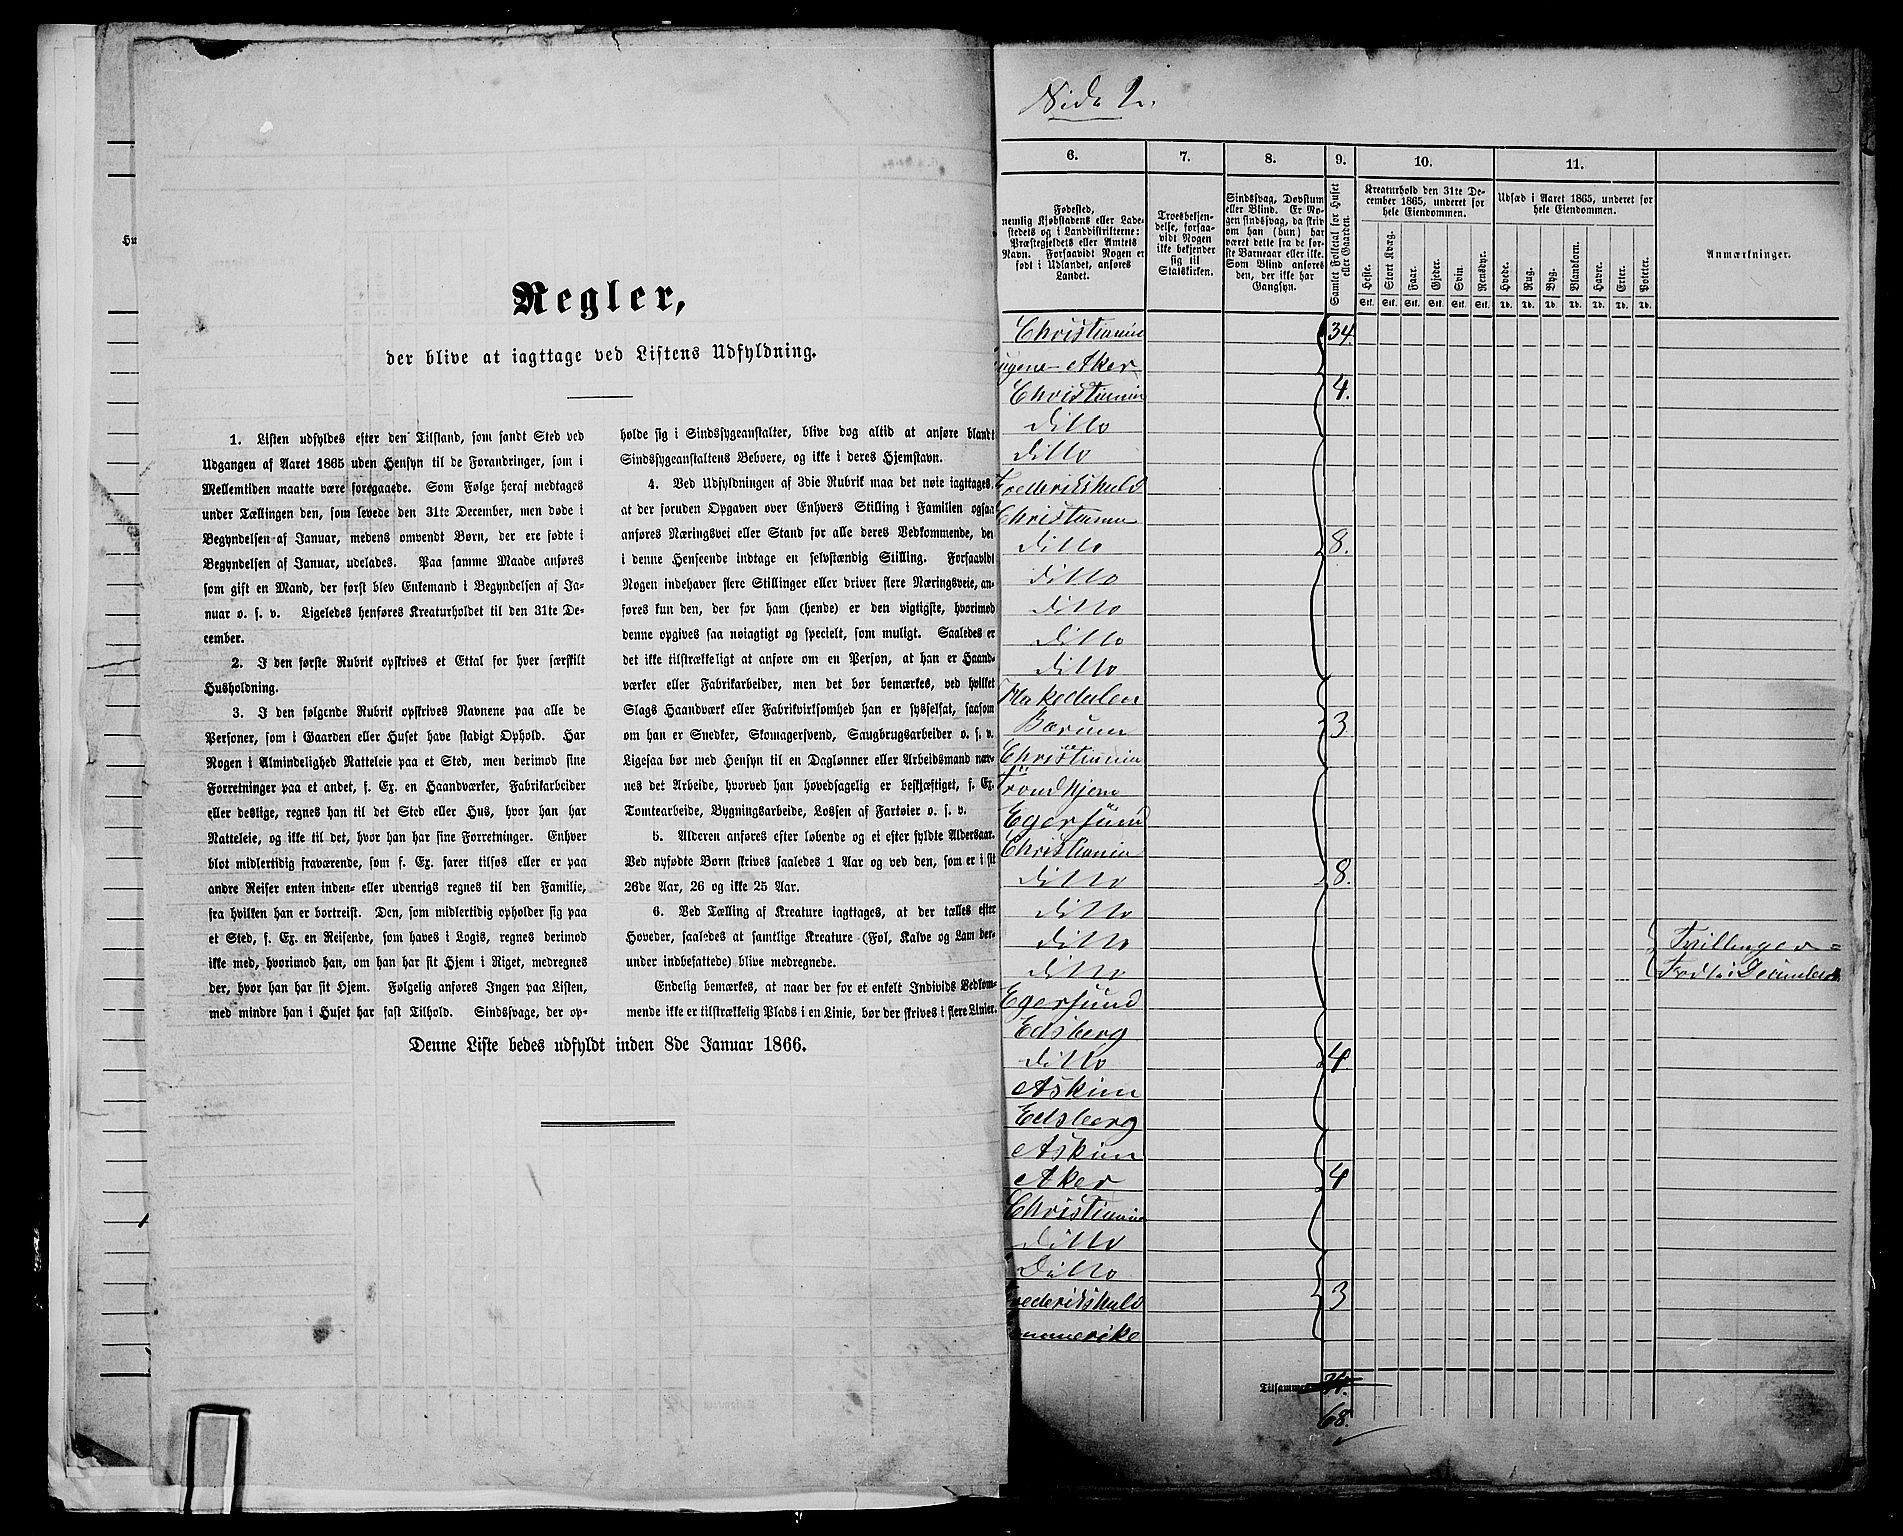 Regler,
der blive at iagttage ved Listens Udfyldning.
1. Listen udfyldes efter den Tilstand, som fandt Sted ved
Udgangen af Aaret 1865 uden Hensyn til de Forandringer, som i
Mellemtiden maatte være foregaaede. Som Følge heraf medtages
under Tællingen den, som levede den 31te December, men døde i
Begyndelsen af Januar, medens omvendt Børn, der ere fødte i
Begyndelsen af Januar, udelades. Paa samme Maade anføres
som gift en Mand, der først blev Enkemand i Begyndelsen af Ja-
nuar o. s. v. Ligeledes henføres Kreaturholdet til den 31te De-
cember.
2. I den første Rubrik opskrives et Ettal for hver særskilt
Husholdning.
3. I den følgende Rubrik opskrives Navnene paa alle de
Personer, som i Gaarden eller Huset have stadigt Ophold. Har
Nogen i Almindelighed Natteleie paa et Sted, men derimod sine
Forretninger paa et andet, f. Ex. en Haandværker, Fabrikarbeider
eller deslige, regnes han til det Sted eller Hus, hvor han har
Natteleie, og ikke til det, hvor han har sine Forretninger. Enhver
blot midlertidig fraværende, som f. Ex. farer tilsøs eller er paa
andre Reiser enten inden- eller udenrigs regnes til den Familie,
fra hvilken han er bortreist. Den, som midlertidig opholder sig paa
et Sted, f. Ex. en Reisende, som haves i Logis, regnes derimod
ikke med, hvorimod han, om han har sit Hjem i Riget, medregnes
der, hvor han har sit Hjem. Følgelig anføres Ingen paa Listen,
med mindre han i Huset har fast Tilhold. Sindssvage, der op-
holde sig i Sindssygeanstalter, blive dog altid at anføre blandt
Sindssygeanstaltens Beboere, og ikke i deres Hjemstavn.
4. Ved Udfyldningen af 3die Rubrik maa det nøie iagttages,
at der foruden Opgaven over Enhvers Stilling i Familien ogsaa
anføres Næringsvei eller Stand for alle deres Vedkommende, der
i denne Henseende indtage en selvstændig Stilling. Forsaavidt
Nogen indehaver flere Stillinger eller driver flere Næringsveie, an-
føres kun den, der for ham (hende) er den vigtigste, hvorimod
denne opgives saa nøiagtigt og specielt, som muligt. Saaledes er
det ikke tilstrækkeligt at anføre om en Person, at han er Haand-
værker eller Fabrikarbeider, men det bør bemærkes, ved hvilket
Slags Haandværk eller Fabrikvirksomhed han er sysselsat, saasom
om han er Snedker, Skomagersvend, Saugbrugsarbeider o. s. v.
Ligesaa bør med Hensyn til en Daglønner eller Arbeidsmand næv-
nes det Arbeide, hvorved han hovedsagelig er beskjæftiget, f. Ex.
Tomtearbeide, Bygningsarbeide, Lossen af Fartøier o. s. v.
5. Alderen anføres efter løbende og ei efter fyldte Aldersaar.
Ved nyfødte Børn skrives saaledes 1 Aar og ved den, som er i sit
26de Aar, 26 og ikke 25 Aar.
6. Ved Tælling af Kreature iagttages, at der tælles efter
Hoveder, saaledes at samtlige Kreature (Føl, Kalve og Lam der-
under indbefattede) blive medregnede.
Endelig bemærkes, at naar der for et enkelt Individs Vedkom-
mende ikke er tilstrækkelig Plads i en Linie, bør der skrives i flere Linier.
Denne Liste bedes udfyldt inden 8de Januar 1866.
Side 2.
6. 7. 8. 9. 10. 11.
Fødested,
nemlig Kjøbstadens eller Lade-
stedets og i Landdistrikterne:
Præstegjeldets eller Amtets
Navn. Forsaavidt Nogen er
født i Udlandet, anføres
Landet.
Troesbekjen-
delse, forsaa-
vidt Nogen
ikke bekjender
sig til
Statskirken.
Sindssvag, Døvstum
eller Blind. Er No-
gen sindssvag, da skriv
om han (hun) har
været dette fra de før-
ste Barneaar eller ikke.
Som Blind anføres
den, der ikke har
Gangsyn.
Samlet Folketal for Huset
eller Gaarden.
Kreaturhold den 31te De-
cember 1865, underet for
hele Eiendommen.
Heste. Stort Kvæg. Faar. Gjeder. Svin. Rensdyr.
Stk. Stk. Stk. Stk. Stk. Stk.
Udsæd i Aaret 1865, underet for
hele Eiendommen.
Hvede. Rug. Byg. Blandkorn. Havre. Erter. Poteter.
Td. Td. Td. Td. Td. Td. Td.
Anmærkninger.
Christiania 34
Aker
Christiania 4.
ditto
ditto
Frederikshald
Christiania
ditto 8.
ditto
ditto
ditto
ditto
Bærum 3
Christiania
Trondhjem
Egersund
Christiania
ditto 8.
ditto
ditto Tvillinger =
ditto
Egersund
Edsberg
ditto 4.
Askim
Edsberg
Askim
Aker 4
Christiania
ditto
Ditto
Frederikshald 3
Tilsammen
68.